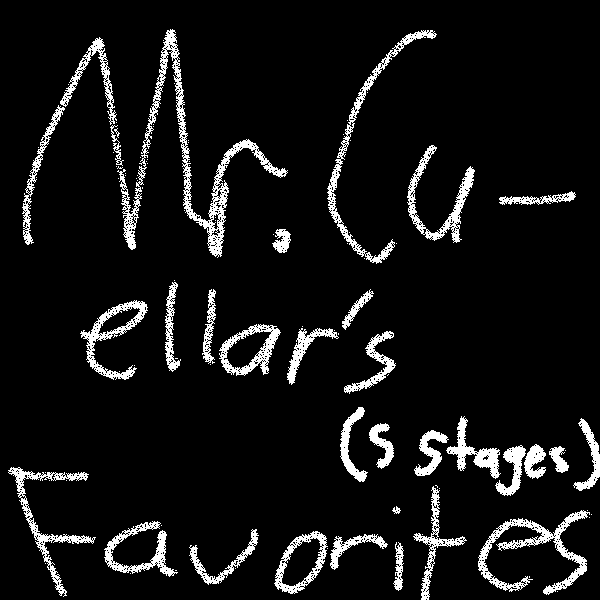 Mr. Cu-
ellar's
(5 stages)
Favorites